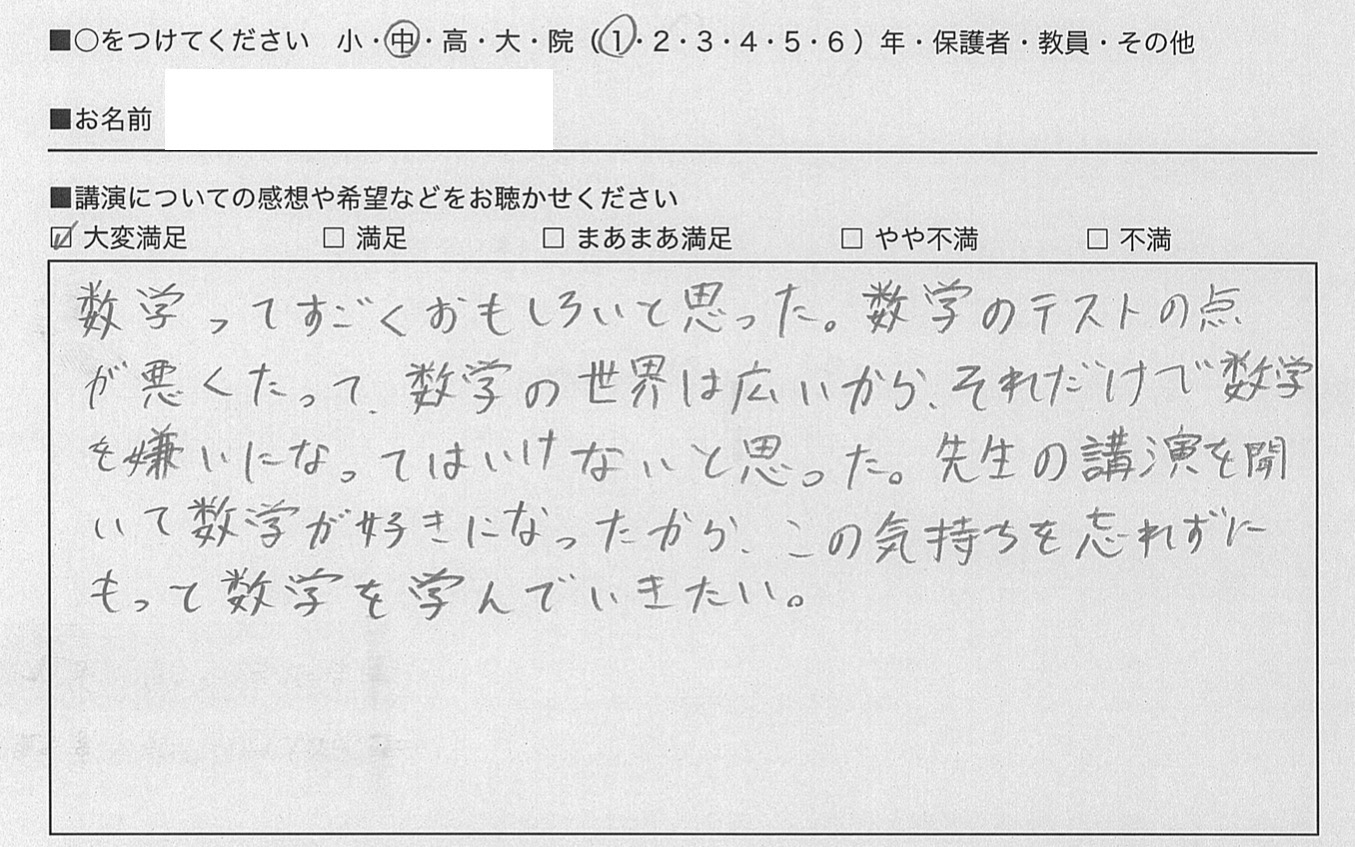 ■○をつけてください 小・中・高・大・院（1・2・3・4・5・6）年・保護者・教員・その他
■お名前
■講演についての感想や希望などをお聴かせください
☑ 大変満足 □ 満足 □ まあまあ満足 □ やや不満 □ 不満
数学ってすごくおもしろいと思った。数学のテストの点
が悪くたって、数学の世界は広いから、それだけで数学
を嫌いになってはいけないと思った。先生の講演を聞
いて数学が好きになったから、この気持ちを忘れずに
もって数学を学んでいきたい。